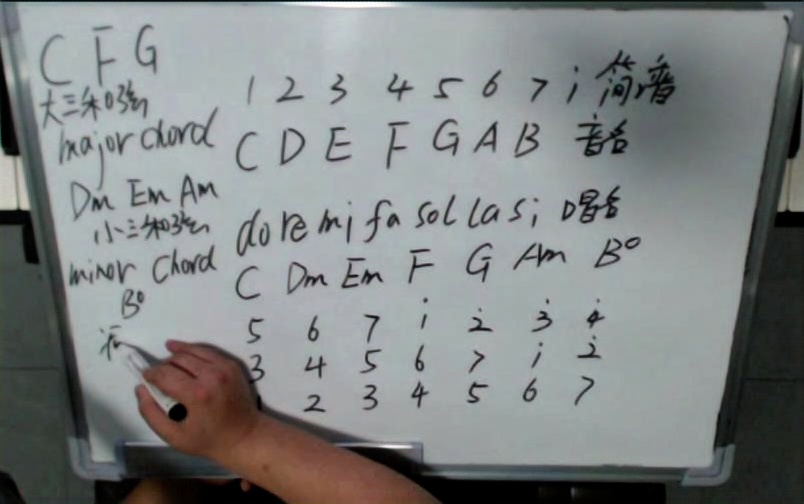 C F G
大三和弦
major chord
Dm Em Am
小三和弦
minor Chord
B°
1 2 3 4 5 6 7 i 简谱
C D E F G A B 音名
do re mi fa sol la si 唱名
C Dm Em F G Am B°
5 6 7 i 2̇ 3̇ 4̇
3 4 5 6 7 i 2̇
2 3 4 5 6 7